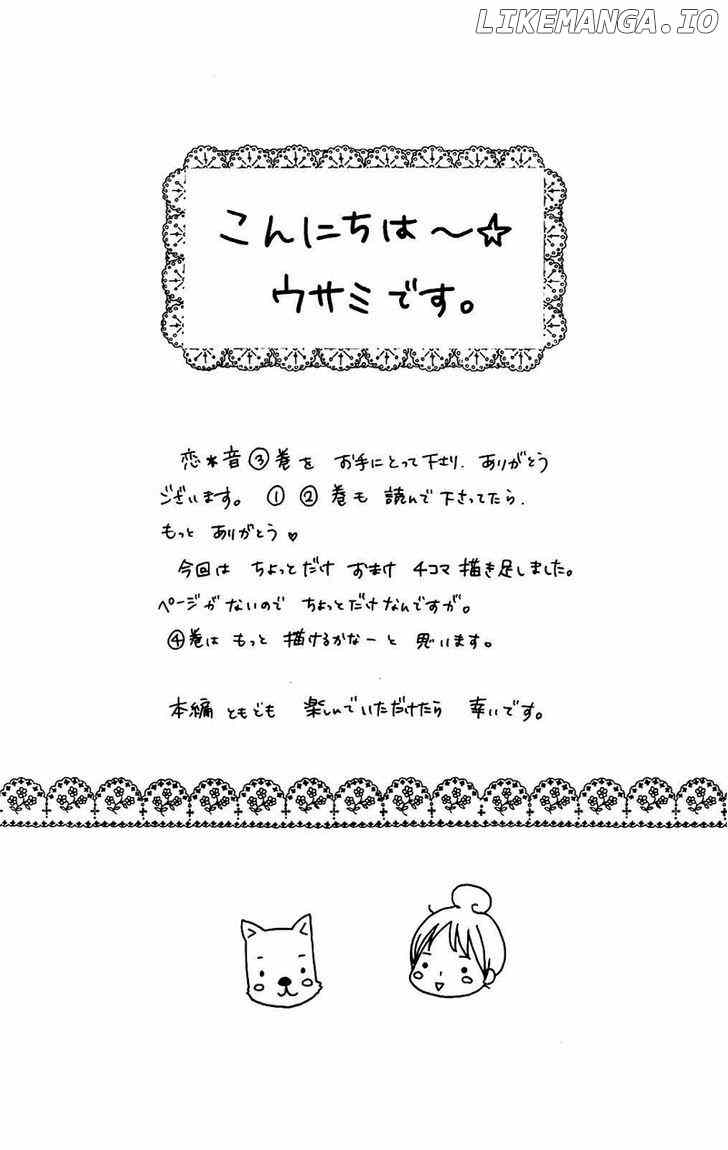 LIKEMANGA.IO
こんにちは〜☆
ウサミです。
恋*音③巻を お手にとって下さり、ありがとう
ございます。 ①②巻も 読んで下さってたら、
もっと ありがとう♡
今回は ちょっとだけ おまけ 4コマ 描き足しました。
ページがないので ちょっとだけなんですが。
④巻は もっと 描けるかなーと 思います。
本編ともども 楽しんでいただけたら 幸いです。